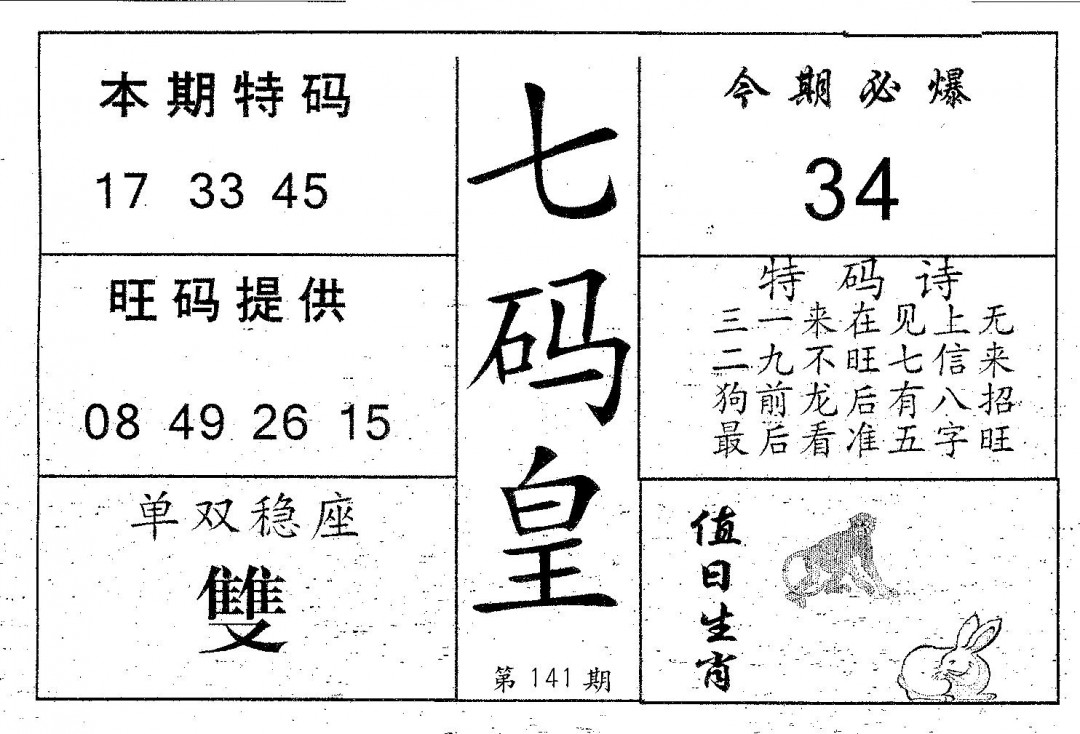 本期特码
17 33 45
旺码提供
08 49 26 15
单双稳座
雙
七码皇
第141期
今期必爆
34
特码诗
三一来在见上无
二九不旺七信来
狗前龙后有八招
最后看准五字旺
值日生肖